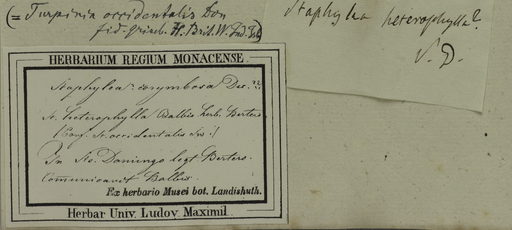 (= Turpinia occidentalis Don
fid. Griseb. Fl. Brit. W. Ind. Isl.)
Staphylea heterophylla?
HERBARIUM REGIUM MONACENSE.
Staphylea corymbosa Des.
St. heterophylla Balbis herb. Bertero
(Conf. St. occidentalis Sw.!)
In St. Domingo legt Bertero.
Communicavit Balbis.
Ex herbario Musei bot. Landishuth.
Herbar Univ. Ludov. Maximil.